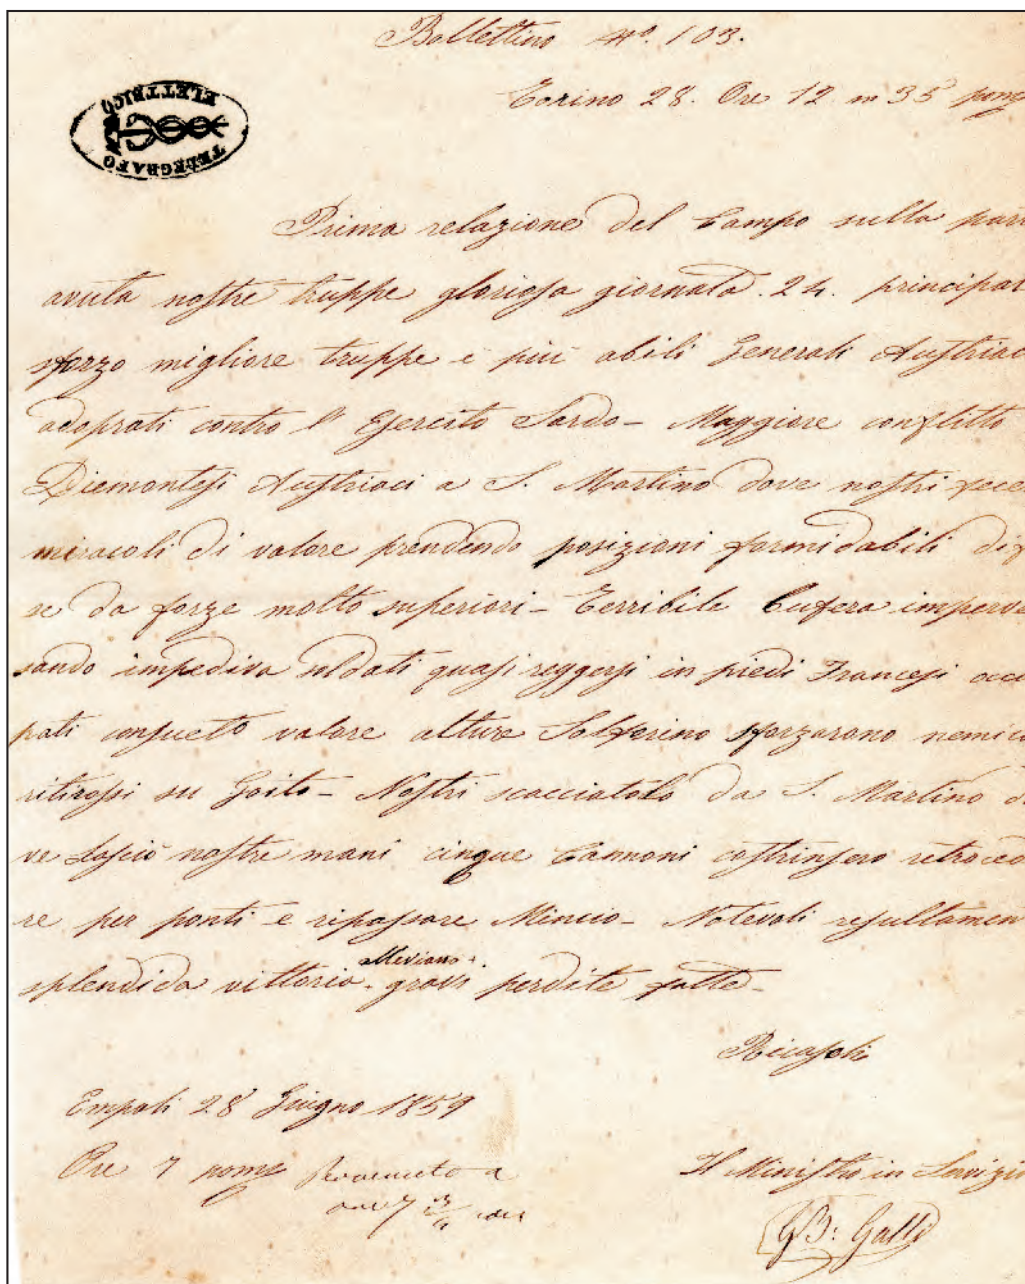 Bollettino N.º 103.
Torino 28. Ore 12 m 35 pomg
TELEGRAFO
ELETTRICO
Prima relazione del Campo sulla par
avuta nostre truppe gloriosa giornata. 24. principal
sforzo migliore truppe e più abili Generali Austriac
adoprati contro l' Esercito Sardo - Maggiore conflitto
Piemontesi Austriaci a S. Martino dove nostri fece
miracoli di valore prendendo posizioni formidabili dif
se da forze molto superiori - Terribile bufera imperver
sando impediva soldati quasi reggersi in piedi Francesi occu
pati consueto valore alture Solferino sforzarono nemico
ritirossi su Goito - Nostri scacciatolo da S. Martino do
ve lasciò nostre mani cinque Cannoni costrinsero retroced
re per ponti e ripassare Mincio - Notevoli resultamen
splendida vittoria - gravi perdite fatte -
Ricasoli
Empoli 28 Giugno 1859
Ore 7 pomg
ore 7 3/4
Il Ministro in Servizio
GB: Galli